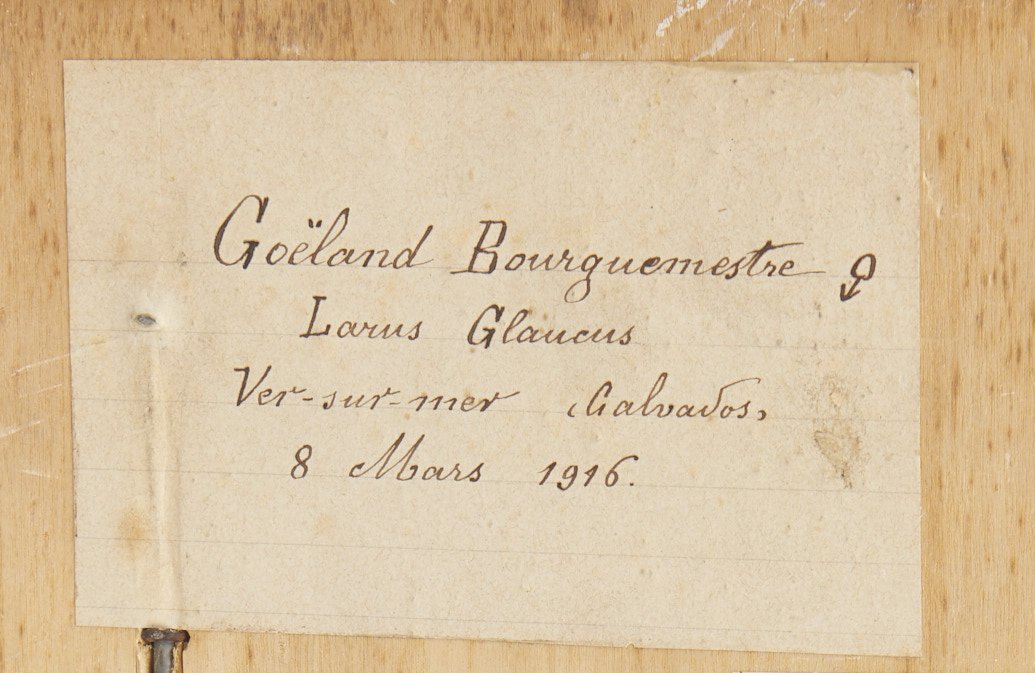 Goëland Bourguemestre ♂
Larus Glaucus
Ver-sur-mer Calvados,
8 Mars 1916.